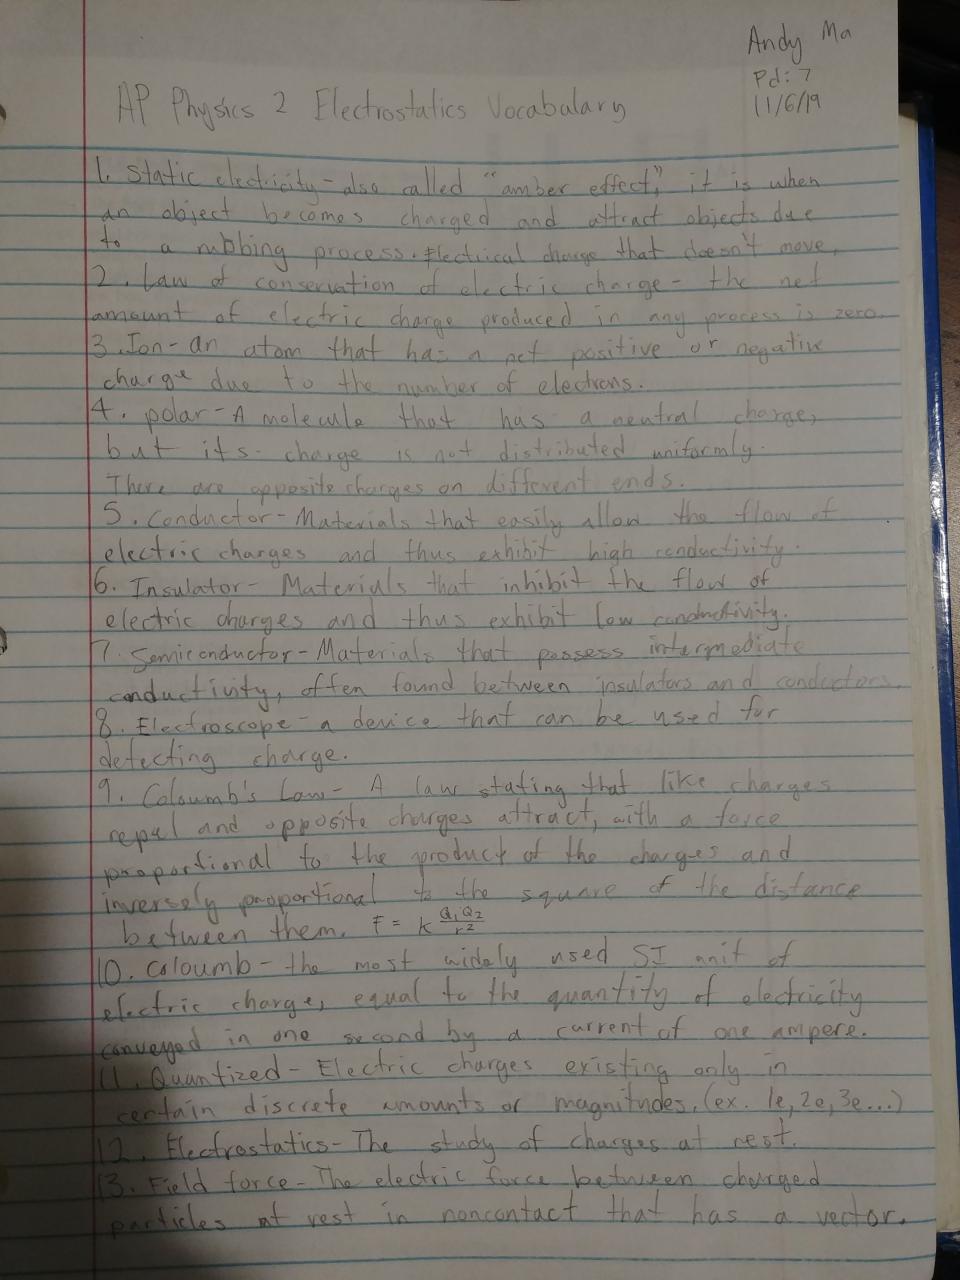 Andy Ma
Pd: 7
11/6/19
AP Physics 2 Electrostatics Vocabulary
1. Static electricity - also called "amber effect", it is when
an object becomes charged and attract objects due
to a rubbing process. Electrical charge that doesn't move.
2. Law of conservation of electric charge - the net
amount of electric charge produced in any process is zero.
3. Ion - an atom that has a net positive or negative
charge due to the number of electrons.
4. polar - A molecule that has a neutral charge,
but its charge is not distributed uniformly.
There are opposite charges on different ends.
5. Conductor - Materials that easily allow the flow of
electric charges and thus exhibit high conductivity.
6. Insulator - Materials that inhibit the flow of
electric charges and thus exhibit low conductivity.
7. Semiconductor - Materials that possess intermediate
conductivity, often found between insulators and conductors.
8. Electroscope - a device that can be used for
detecting charge.
9. Coloumb's Law - A law stating that like charges
repel and opposite charges attract, with a force
proportional to the product of the charges and
inversely proportional to the square of the distance
between them. F = k Q₁Q₂/r²
10. Coloumb - the most widely used SI unit of
electric charge, equal to the quantity of electricity
conveyed in one second by a current of one ampere.
11. Quantized - Electric charges existing only in
certain discrete amounts or magnitudes. (ex. 1e, 2e, 3e...)
12. Electrostatics - The study of charges at rest.
13. Field force - The electric force between charged
particles at rest in noncontact that has a vector.